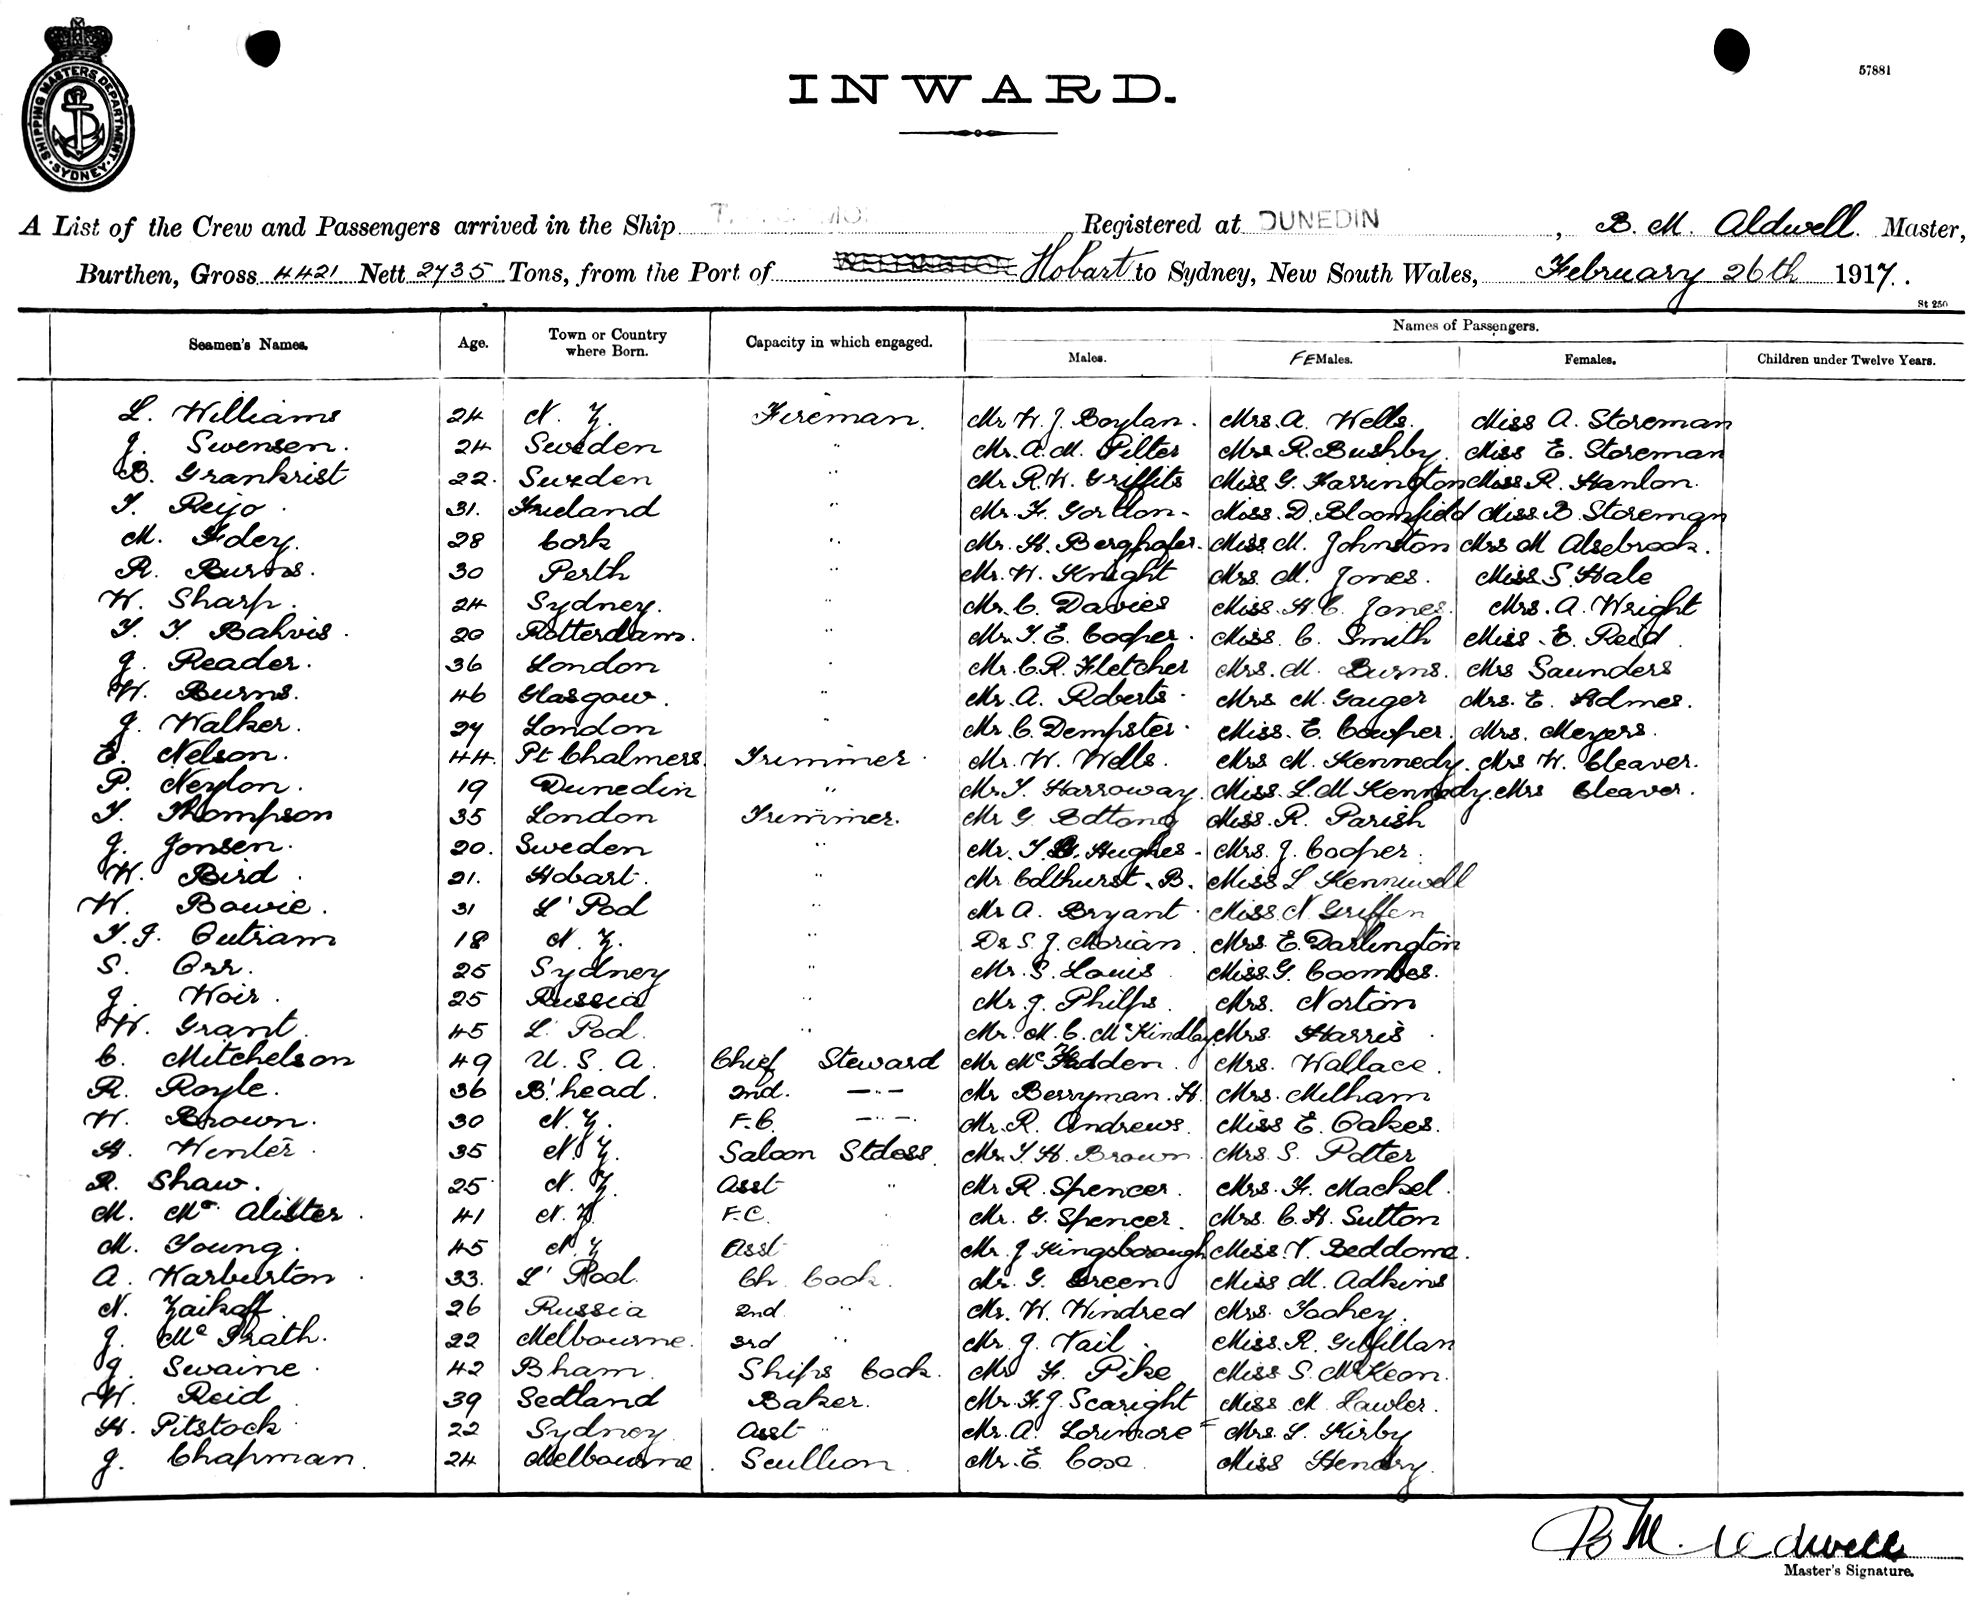 SHIPPING MASTERS DEPARTMENT
SYDNEY
57881
INWARD.
A List of the Crew and Passengers arrived in the Ship Registered at DUNEDIN, B. M. Aldwell. Master,
Burthen, Gross 4421 Nett 2735 Tons, from the Port of Hobart to Sydney, New South Wales, February 26th 1917.
St 250
Seamen's Names. Age. Town or Country where Born. Capacity in which engaged. Names of Passengers.
Males. FEMales. Females. Children under Twelve Years.
L. Williams 24 N. Z. Fireman. Mr W. J. Boylan. Mrs. A. Wells. Miss A. Storeman
J. Swensen. 24 Sweden " Mr. A. M. Pilter Mrs R. Bushby. Miss E. Storeman
B. Grankrist 22. Sweden " Mr R. W. Griffits Miss G. Farrington Miss R. Hanlon.
T. Reijo 31. " Mr. F. Gordon. Miss. D. Bloomfield Miss B. Storeman
M. 28 Cork " Mr. H. Berghofer. Miss M. Johnston Mrs M Alsebrook.
R. Burns. 30 Perth " Mr. W. Knight Mrs. M. Jones. Miss S. Hale
W. Sharp. 24 Sydney. " Mr. C. Davies Miss. H. C. Jones. Mrs. A. Wright
T. T. Bahvis 20 Rotterdam. " Mr. T. E. Cooper. Miss. C. Smith Miss. E. Reid
J. Reader. 36 London " Mr. C. R. Fletcher Mrs. M. Burns. Mrs Saunders
W. Burns. 46 Glasgow. " Mr. A. Roberts Mrs M. Gaiger Mrs. E. Holmes.
J. Walker. 27 London " Mr. C. Dempster. Miss. E. Cowper. Mrs. Meyers.
E. Nelson. 44. Pt Chalmers. Trimmer. Mr. W. Wells. Mrs M. Kennedy. Mrs W. Cleaver.
P. Neylon. 19 Dunedin " Mr. T. Harroway. Miss. L. M Kennedy. Mrs Cleaver.
T. Thompson 35 London Trimmer. Mr G. Miss. R. Parish
J. Jonsen. 20. Sweden " Mr. T. Hughes. Mrs. J. Cooper.
W. Bird 21. Hobart. " Mr Colthurst. B. Miss L Kenniwell
W. Bowie. 31 L'Pool " Mr A. Bryant Miss N Griffen
T. J. Outram 18 N. Z. " Dr S. J. Morian. Mrs. E. Darlington
S. Orr. 25 Sydney " Mr. S. Louis Miss G. Coombes.
J. Woir. 25 Russia " Mr. J. Philps. Mrs. Norton
W. Grant. 45 L'Pool. " Mr. M. C. McKindlay. Mrs. Harris
C. Mitchelson 49 U. S. A. Chief Steward Mr McFadden. Mrs. Wallace.
R. Royle. 36 B'head. 2nd. —"— Mr Berryman. H. Mrs. Melham
W. Brown. 30 N. Z. F.C. —"— Mr. R. Andrews. Miss E. Oakes.
H. Wenter 35 N. Z. Saloon Stdess. Mr. T. H. Brown Mrs. S. Potter
R. Shaw. 25 N. Z. Asst " Mr R. Spencer. Mrs. F. Mackel.
M. McAlister. 41 N. Z. F.C. " Mr. G. Spencer. Mrs. C. H. Sutton
M. Young. 45 N. Z. Asst " Mr. J Kingsborough Miss. V. Beddome.
A. Warburton 33. L'Pool. Ch. Cook. Mr. G. Green Miss M. Adkins
N. Zaikoff 26 Russia 2nd " Mr. W. Windred Mrs. Tochey.
J. McGrath. 22 Melbourne. 3rd " Mr. J. Vail. Miss. R. Gilfillan
J. Swaine 42 B'ham. Ships Cook. Mr F. Pike Miss S. McKeon.
W. Reid 39 Scotland Baker. Mr. F. J. Searight Miss M. Lawler.
H. Pitstock 22 Sydney Asst " Mr. A. Lorimore Mrs. L. Kirby
J. Chapman. 24 Melbourne. Scullion. Mr. E. Coxe. Miss Hendry.
B M. Aldwell
Master's Signature.